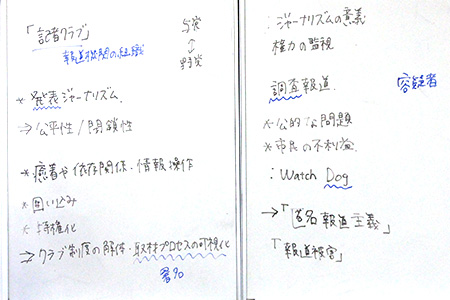 「記者クラブ」
報道機関の組織
与党
↕
野党
* 発表ジャーナリズム.
⇒ 公平性/閉鎖性
* 癒着や依存関係・情報操作
* 囲い込み
* 特権化
⇒ クラブ制度の解体・取材プロセスの可視化
署名
: ジャーナリズムの意義
権力の監視
調査報道.
容疑者
* 公的な問題
* 市民の不利益.
: Watch Dog
→「匿名報道主義」
「報道被害」